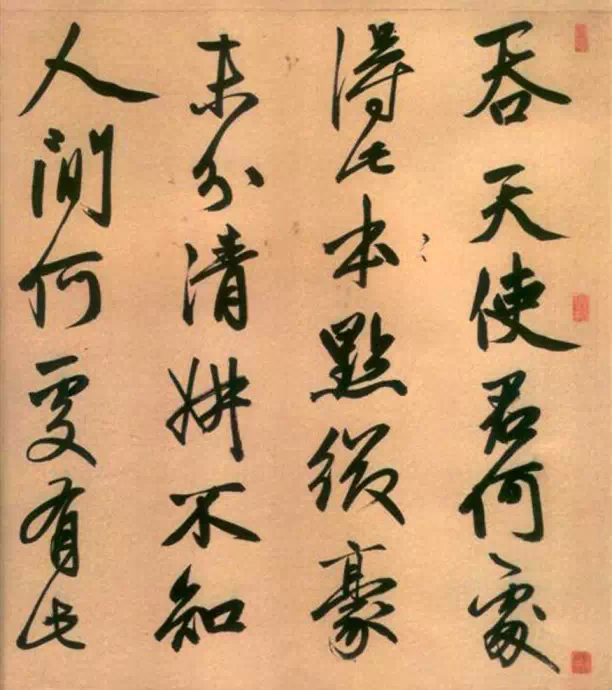 吞天使君何處
得此本點綴豪
末分清妍不知
人間何處有此